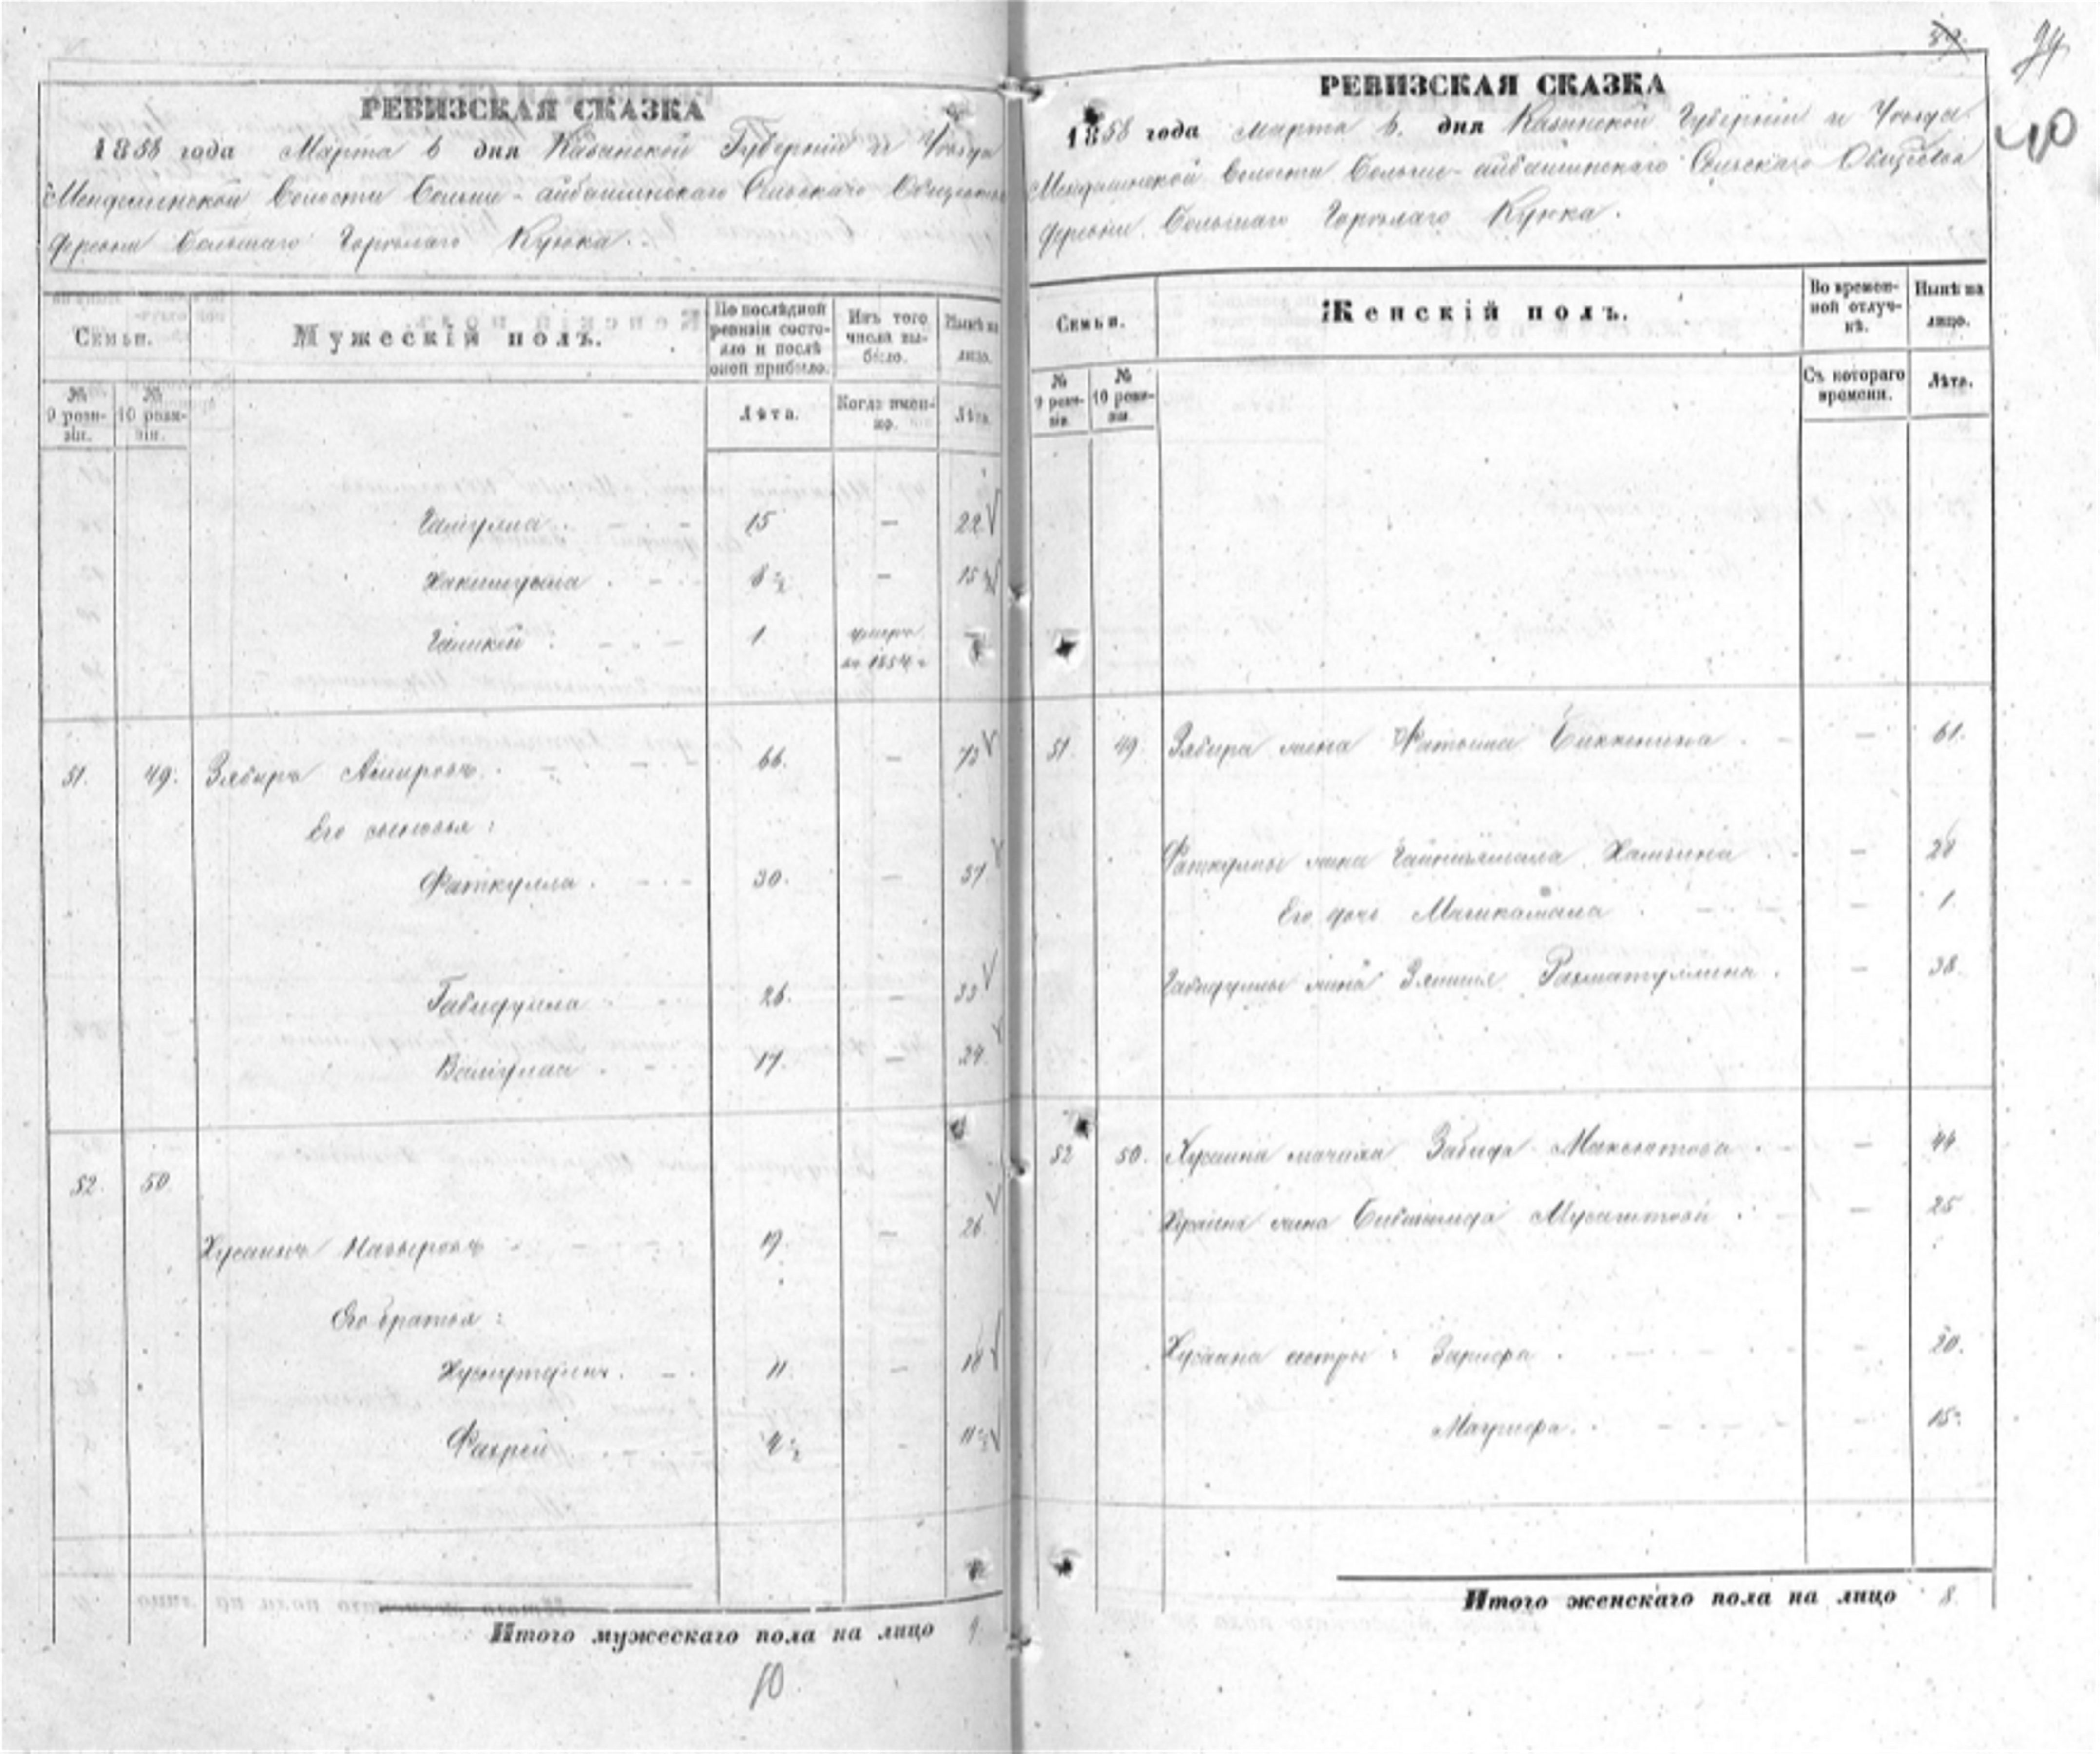 РЕВИЗСКАЯ СКАЗКА
1858 года Марта 6 дня Казанской Губернiи и Уѣзда
Волости Больше-айбашинскаго Сельскаго Общества
деревни Большаго Кукка.
Семьи.
Мужескiй полъ.
По послѣдней ревизiи состояло и послѣ оной прибыло.
Изъ того числа выбыло.
Нынѣ на лицо.
№ 9 ревизiи.
№ 10 ревизiи.
Лѣта.
Когда именно.
Лѣта.
15 — 22
8 ½ — 15 ½
1. умеръ въ 1854 г —
51. 49. Зябиръ Амировъ 66. — 73
Его сыновья:
Фаткулла. 30. — 37
Габидулла 26. — 33
Валiулла 17. — 24.
52. 50
Хусаинъ Назыровъ 19. — 26
Его братья:
11. — 18
Фахрей 4 ½ - 11 ½
Итого мужескаго пола на лицо 9.
10
94
40
РЕВИЗСКАЯ СКАЗКА
1858 года марта 6. дня Казанской Губернiи и Уѣзда
Волости Больше-айбашинскаго Сельскаго Общества
деревни Большаго Кукка.
Семьи.
Женскiй полъ.
Во временной отлучкѣ.
Нынѣ на лицо.
№ 9 ревизiи.
№ 10 ревизiи.
Съ котораго времени.
Лѣта.
51 49 Зябира жена Биккенина — 61.
Фаткуллы жена — 28
Его дочь — 1
Габидуллы жена Рахматуллина. — 38.
52 50. Хусаина мачиха Забида — 44
Хусаина жена — 25
Хусаина сестры: Зарифа — 20.
Магрифа. — 15.
Итого женскаго пола на лицо 8.